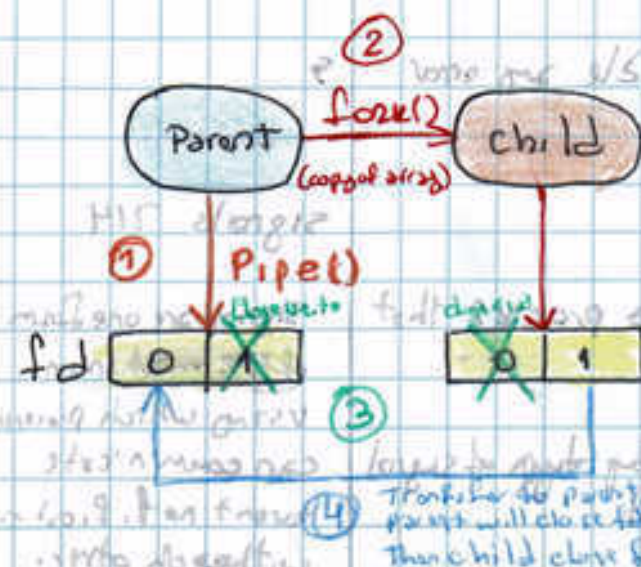 2
fork()
Parent
child
(copy of array)
1
Pipe()
close write
close read
fd 0 1
0 1
3
4
Transfer to parent
parent will close
Then child close